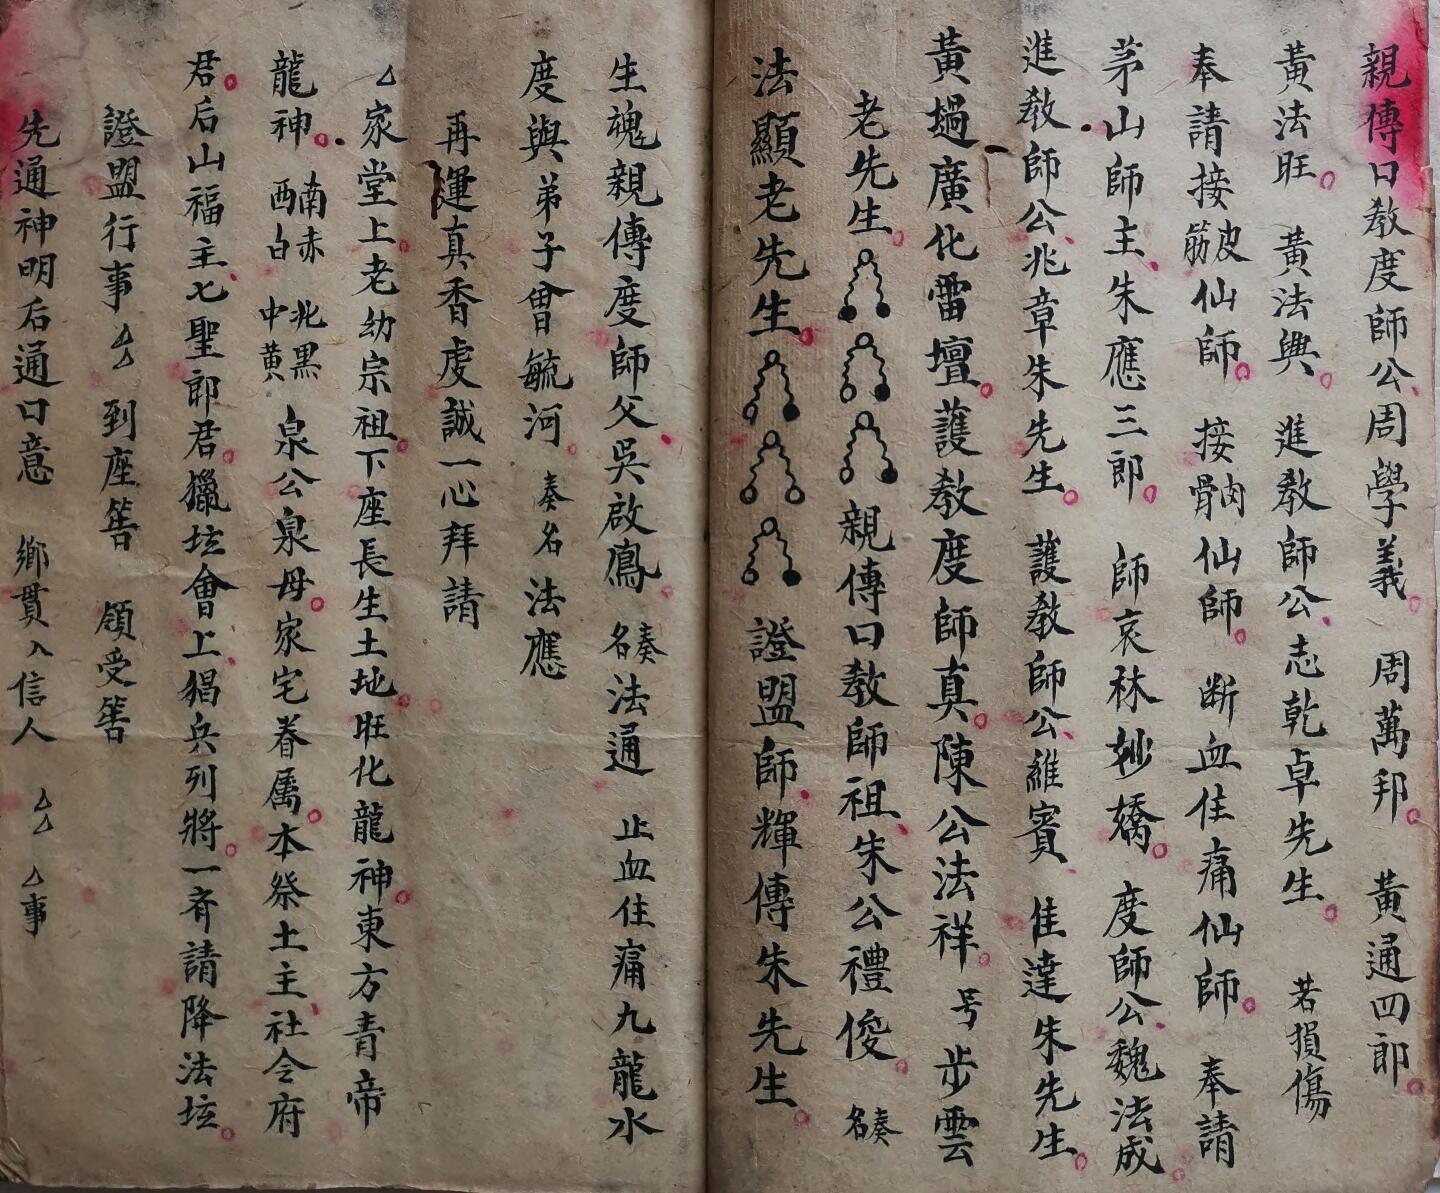 親傳口教度師公周學義 周萬邦 黃通四郎
黃法旺 黃法興 進教師公志乾卓先生 若損傷
奉請接皮筋仙師 接肉骨仙師 断血住痛仙師 奉請
茅山師主朱應三郎 師哀秝妙嬌 度師公魏法成
進教師公兆章朱先生 護教師公維賓 隹達朱先生
黃塲廣化雷壇護教度師真陳公法祥 号步雲
老先生 親傳口教師祖朱公禮俊 奏名
法顯老先生 證盟師輝傳朱先生
生魂親傳度師父吳啟鳳 奏名法通 止血住痛九龍水
度與弟子曾毓河 奏名法應
再運真香虔誠一心拜請
厶家堂上老幼宗祖下座長生土地旺化龍神東方青帝
龍神 南赤西白 北黑中黃 泉公泉母家宅眷属本祭土主社令府
君后山福主七聖郎君獵坛會上猖兵列將一齐請降法坛
證盟行事 厶厶到座筶 領受筶
先通神明后通口意 鄉貫入信人 厶厶 厶事